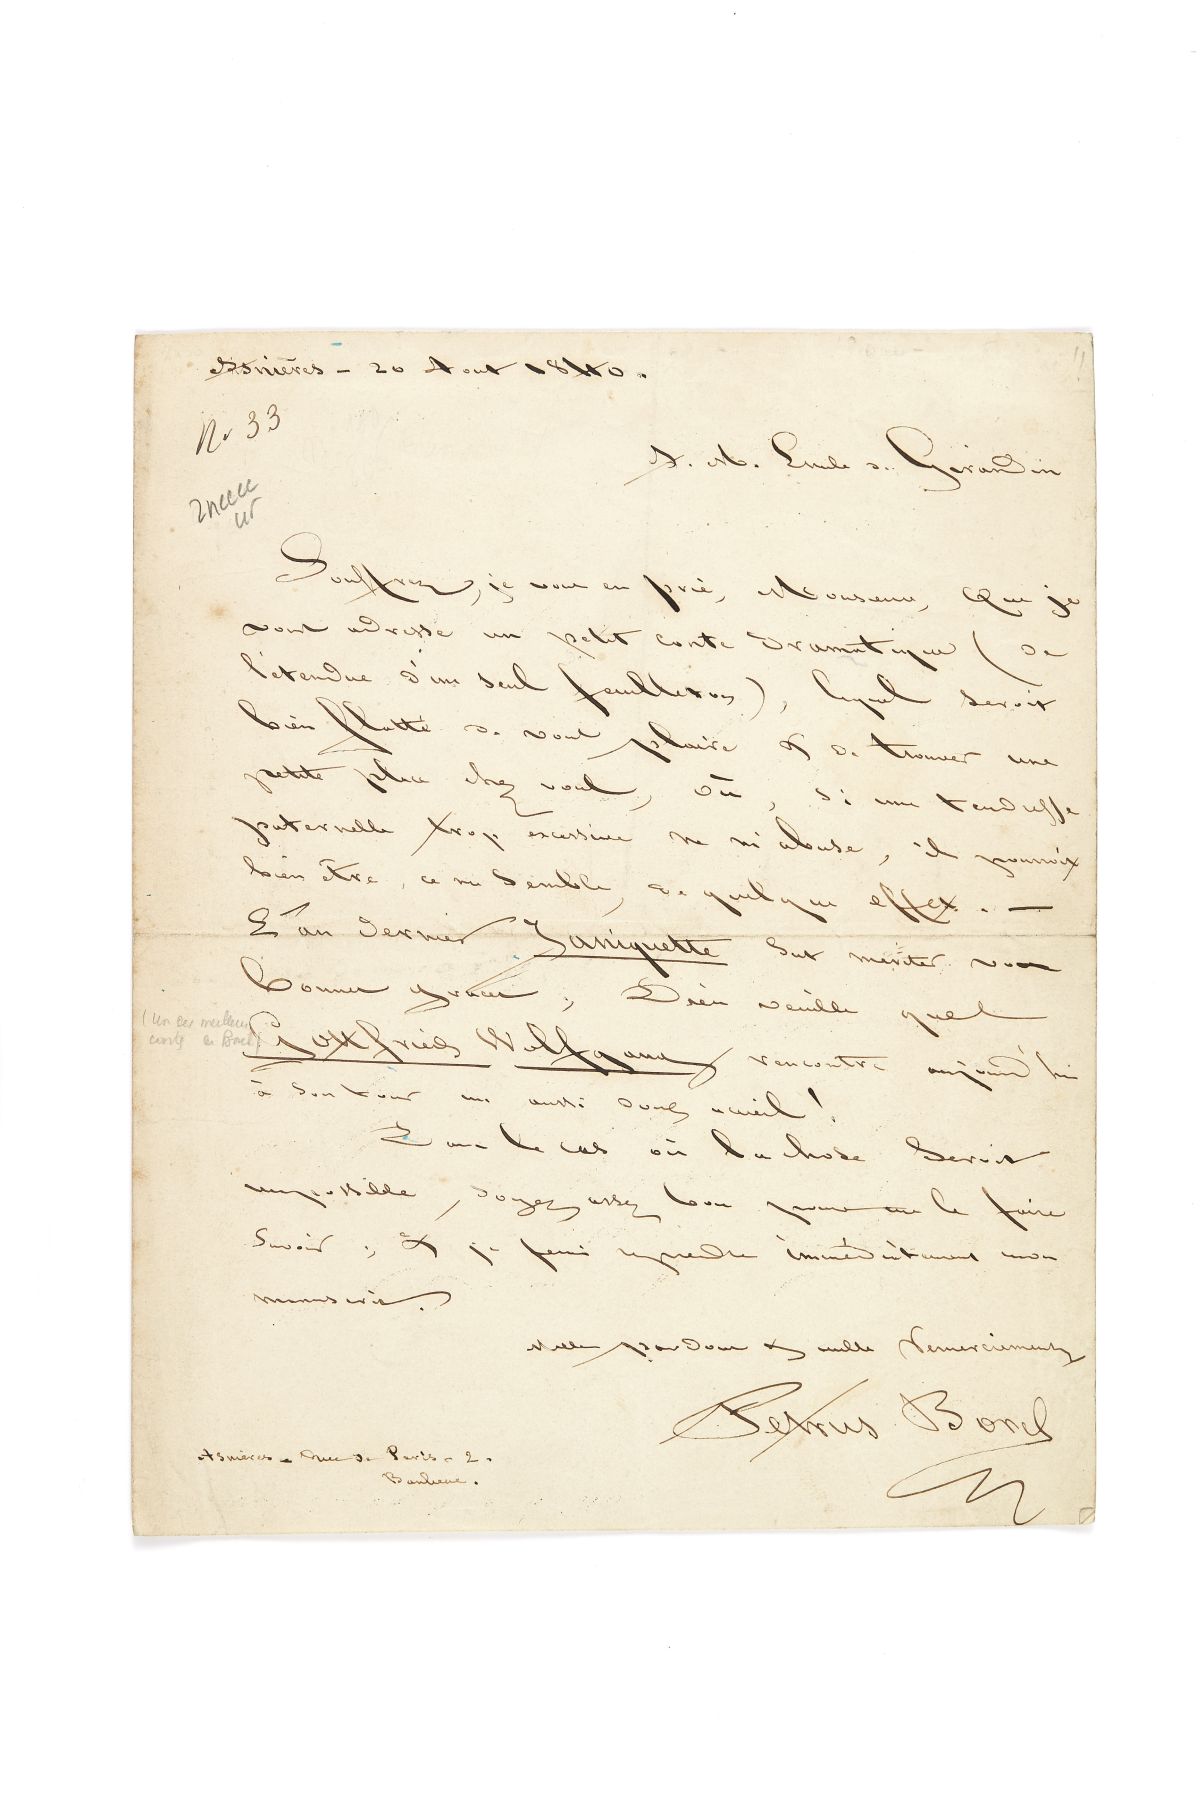 Asnières – 20 Aout 1840.
No 33
A. M. Emile de Girardin
Souffrez, je vous en prie, Monsieur, Que je
vous adresse un petit conte dramatique (de
l'étendue d'un seul feuilleton), lequel seroit
bien flatté de vous plaire & de trouver une
petite place chez vous, où, si une tendresse
paternelle trop excessive ne m'abuse, il pourroit
bien être, ce me semble, de quelque effet. —
L'an dernier Janiquette sut mériter vos
bonnes grâces ; Dieu veuille que
Gottfried Wolfgang rencontre aujourd'hui
à son tour un aussi doux acueil !
Dans le cas où la chose seroit
impossible, soyez assez bon pour me le faire
savoir ; & je ferai reprendre immédiatement mon
manuscrit.
Mille pardons & mille remerciements
Petrus Borel
Asnières – rue de Paris – 2.
Banlieue.
(Un des meilleurs
contes de Borel)